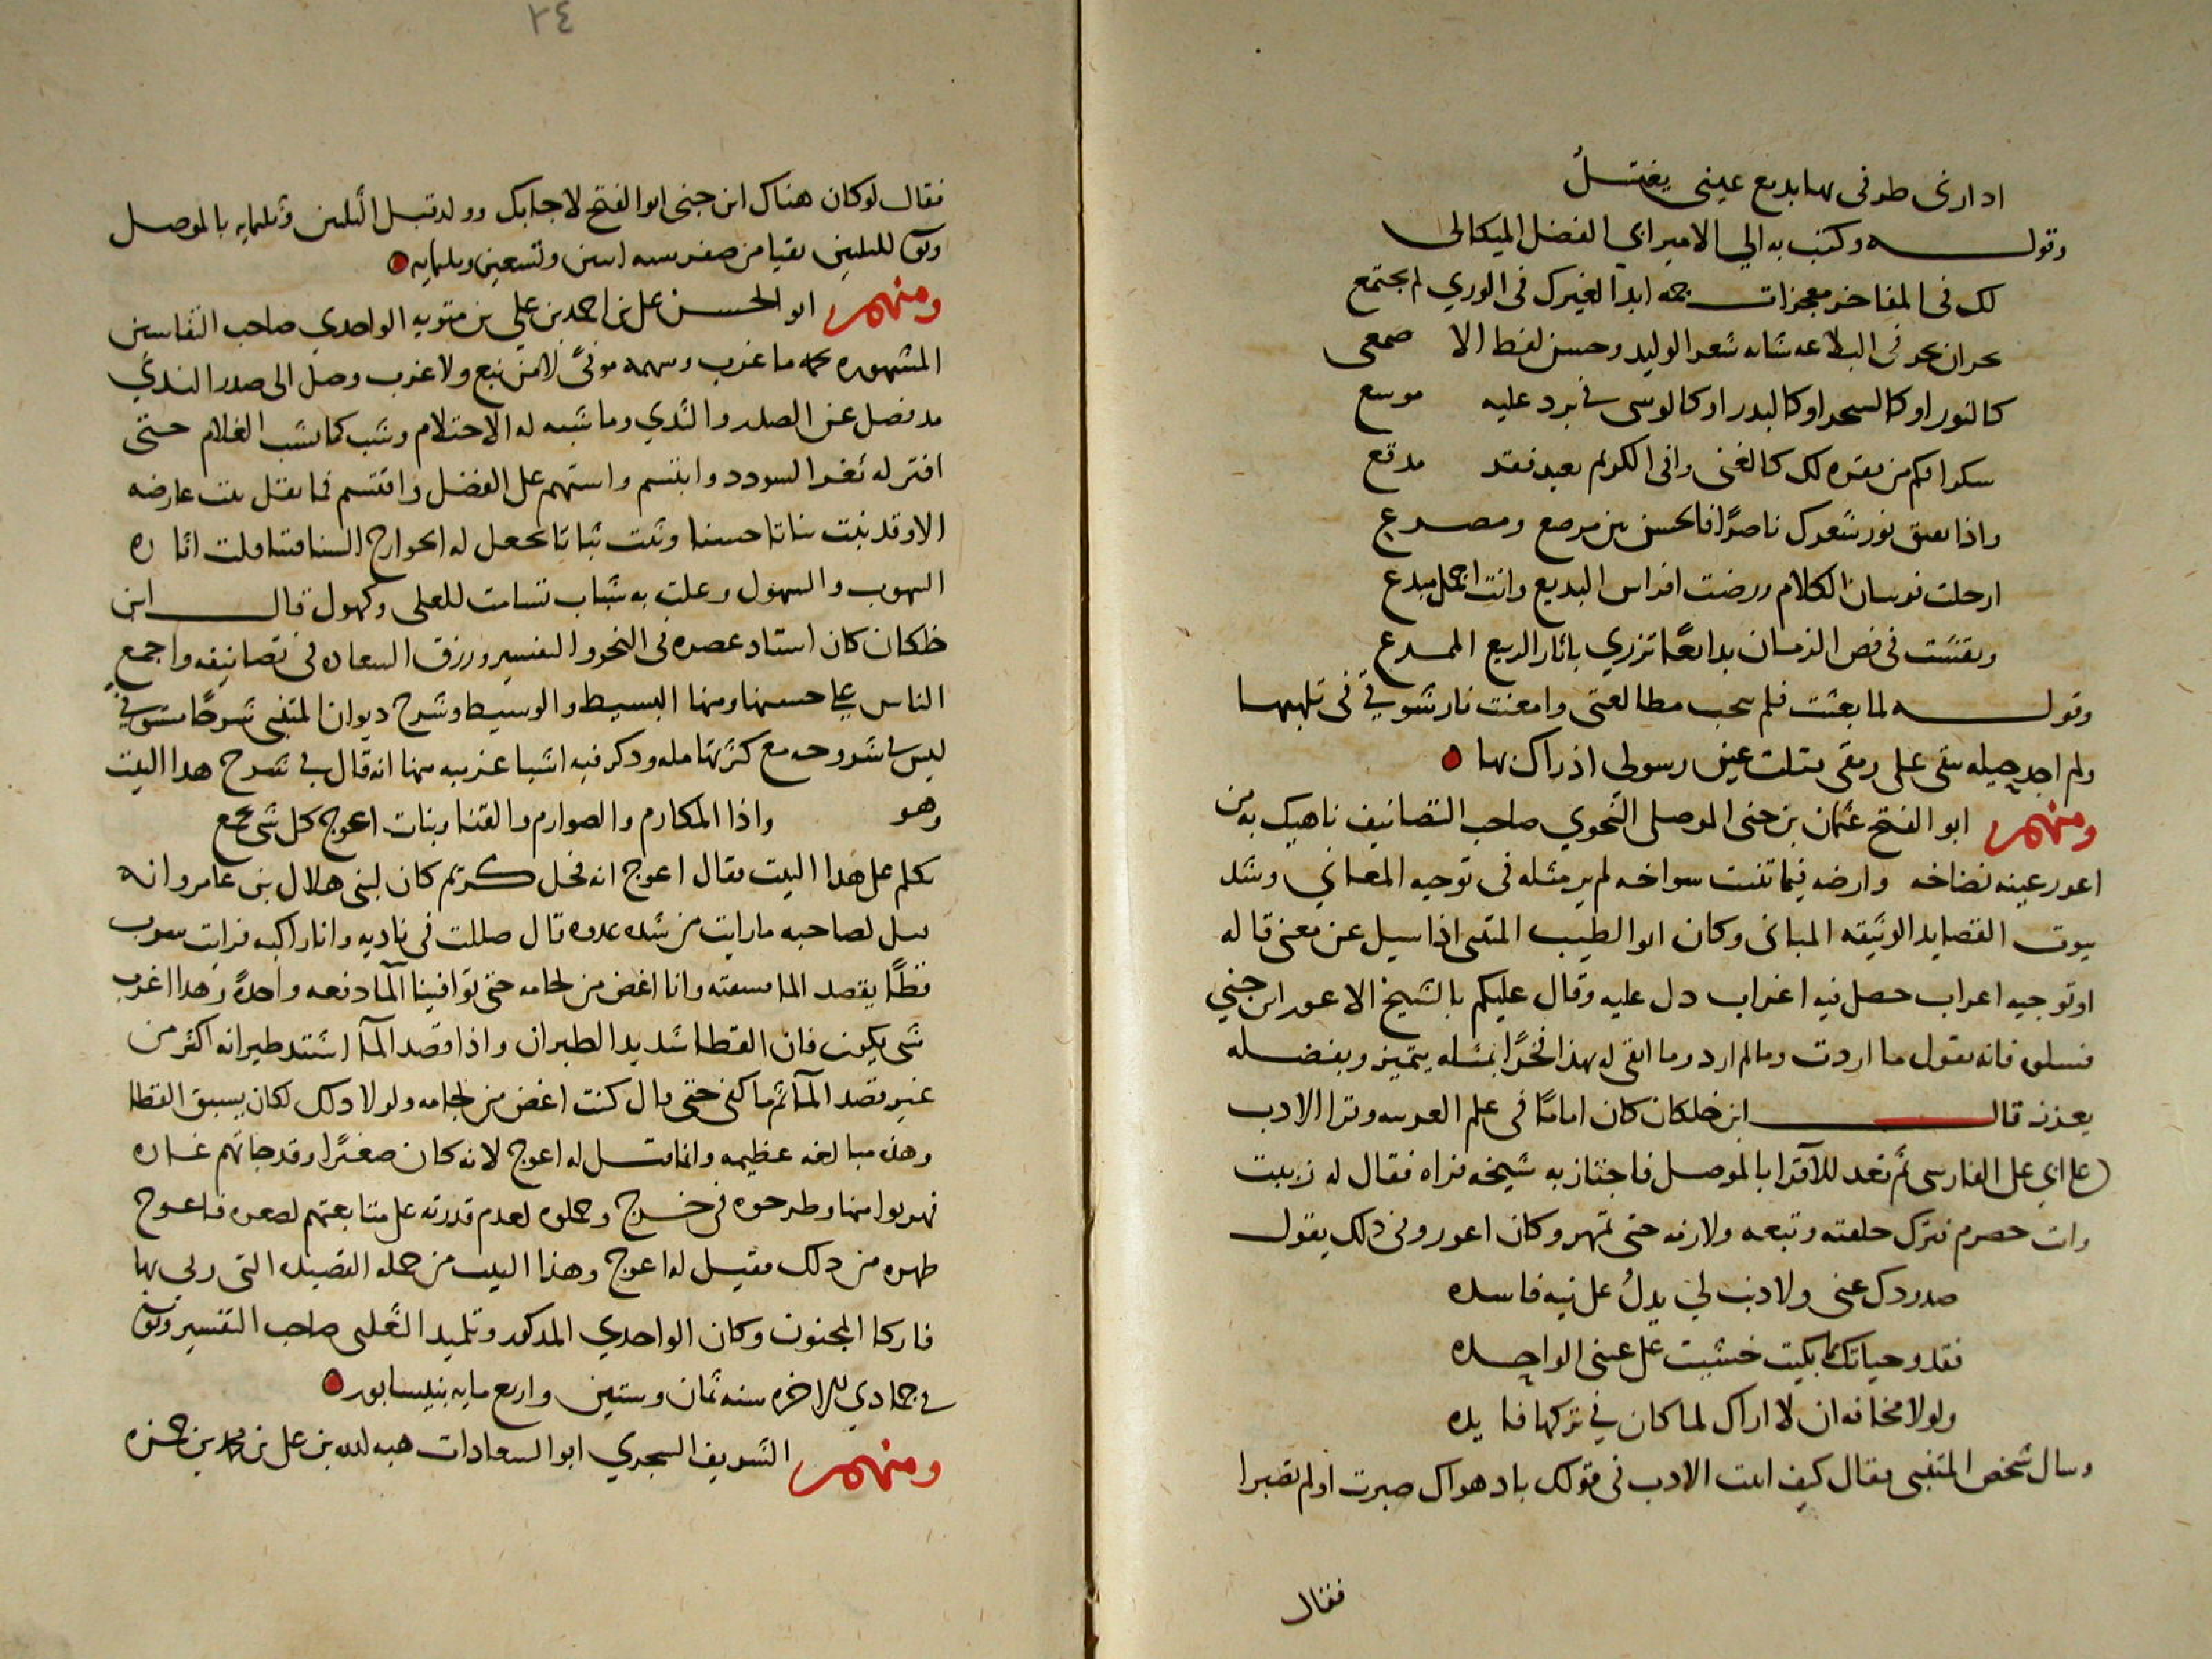 ادارى طرفى بها بديع عينى يغتسلُ
وقولـه وكتب به الي الامير ابي الفضل الميكالى
لك فى المفاخر معجزات جمه ابداً لغيرك فى الوري لم يجتمع
بحران بحر فى البلاغه شابه شعر الوليد وحسن لفظ الا صمعى
كالنور او كالسحر او كالبدر او كالوسى فى برد عليه موسع
سكرا فكم من فقره لك كالغنى وافى الكريم بعيد فقد مدقع
واذا تفتق نور شعرك ناضرًا فالحسن بين مرصع ومصرع
ارجلت فرسان الكلام ورضت افراس البديع وانت امجد مبدع
ونقشت فى فص الزمان بدايعًا تزري باثار الربيع الممرع
وقولـه لما بعثت فلم تجب مطالعتى وامعنت نار شوقي فى تلهبها
ولم اجد حيله تبقى على رمقى قبلت عيني رسولي اذ راك بها
ومنهم ابو الفتح عثمان بن جنى الموصلى النحوي صاحب التصانيف ناهيك به من
اعور عينه نضاخه وارضه فيما تنبت سواخه لم ير مثله فى توجيه المعاني وشد
بيوت القصايد الوثيقه المبانى وكان ابو الطيب المتنبى اذا سيل عن معنى قاله
او توجيه اعراب حصل فيه اغراب دل عليه وقال عليكم بالشيخ الاعور ابن جني
فسلوه فانه يقول ما اردت وما لم ارد وما ابقى له بهذا فخرًا بمثله يتميز وبفضله
يعزز قال ابن خلكان كان امامًا فى علم العربيه وقرا الادب
على ابي على الفارسى ثم قعد للاقرا بالموصل فاجتاز به شيخه فراه فقال له زببت
وانت حصرم فترك حلقته وتبعه ولازمه حتى تمهر وكان اعور وفى ذلك يقول
صدودك عنى ولا ذنب لي يدلُ على نيه فاسده
فقد وحياتك مما بكيت خشيت على عينى الواحده
ولولا مخافه ان لا اراك لما كان في تركها فايده
وسال شخص المتنبى فقال كيف اثبت الادب فى قولك باد هواك صبرت اولم تصبرا
فقال
٢٤
فقال لو كان هناك ابن جنى ابو الفتح لاجابك وولد قبل الثلثين وثلثمايه بالموصل
وتوفى لليلتين بقيا من صفر سنه اثنين وتسعين وثلثمايه
ومنهم ابو الحسن على بن احمد بن علي بن متويه الواحدي صاحب التفاسير
المشهوره ما غرب وسهمه موفى لا من نبع ولا غرب وصل الى صدر الندي
مذ فصل عن الصدر والثدي وما شبه له الاحتلام وشب كما يشب الغلام حتى
افتر له ثغر السودد وابتسم واستهم على الفضل واقتسم فما بقل نبت عارضه
الا وقد نبت نباتا حسنا وثبت ثباتا تجعل له الجوارح السنا فتناقلت اثاره
السهوب والسهول وعلت به شباب تسامت للعلى وكهول قال ابن
خلكان كان استاد عصره فى النحو والتفسير ورزق السعاده فى تصانيفه واجمع
الناس على حسنها ومنها البسيط والوسيط وشرح ديوان المتنبى شرحًا مستوفى
ليس فى شروحه مع كثرتها مثله وذكر فيه اشيا غريبه منها انه قال في شرح هذا البيت
وهو واذا المكارم والصوارم والقنا وبنات اعوج كل شى يجمع
تكلم على هذا البيت فقال اعوج انه فحل كريم كان لبنى هلال بن عامر وانه
قيل لصاحبه ما رايت من شده عدوه قال ضللت فى باديه وانا راكبه فرايت سرب
قطًا يقصد الما فتبعته وانا اغض من لجامه حتى توافينا الما دفعه واحدةً وهذا اغرب
شى يكون فان القطا شديد الطيران واذا قصد المآ اشتد طيرانه اكثر من
غير قصد المآ ثم ما كفى حتى قال كنت اغض من لجامه ولولا ذلك لكان يسبق القطا
وهذه مبالغه عظيمه وانما قيل له اعوج لانه كان صغيرًا وقد جاتهم غاره
فهربوا منها وطرحوه فى خرج وحملوه لعدم قدرته على متابعتهم لصغره فاعوج
ظهره من ذلك فقيل له اعوج وهذا البيت من جمله القصيده التى رثى بها
فاركا المجنون وكان الواحدي المدكور وتلميد الثعلبى صاحب التفسير وتوفى
في جمادي الاخره سنه ثمان وستين واربع مايه بنيسابور
ومنهم الشريف الشجري ابو السعادات هبه الله بن على بن محمد بن حمزه